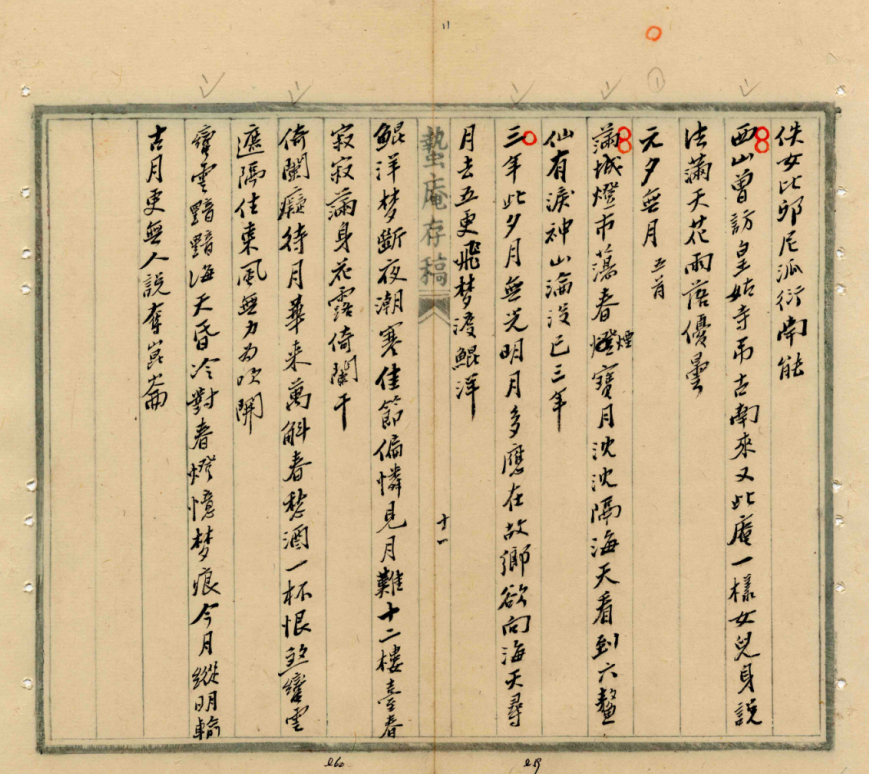 佚女比邱尼派衍南能
西山曾訪皇姑寺吊古南來又此庵一樣女兒身說
法滿天花雨落優曇
元夕無月 五首
滿城燈市蕩春煙寶月沈沈隔海天看到六鰲
仙有淚神山淪沒已三年
三年此夕月無光明月多應在故鄉欲向海天尋
月去五更飛梦渡鯤洋
蟄庵存稿
十一
鯤洋梦斷夜潮寒佳節偏憐見月難十二樓臺春
寂寂滿身花露倚闌干
倚闌癡待月華來萬斛春愁酒一杯恨煞蠻雲
遮隔住東風無力為吹開
蠻雲黯黯海天昏冷對春燈憶梦痕今月縱明輸
古月更無人說奪崑崙